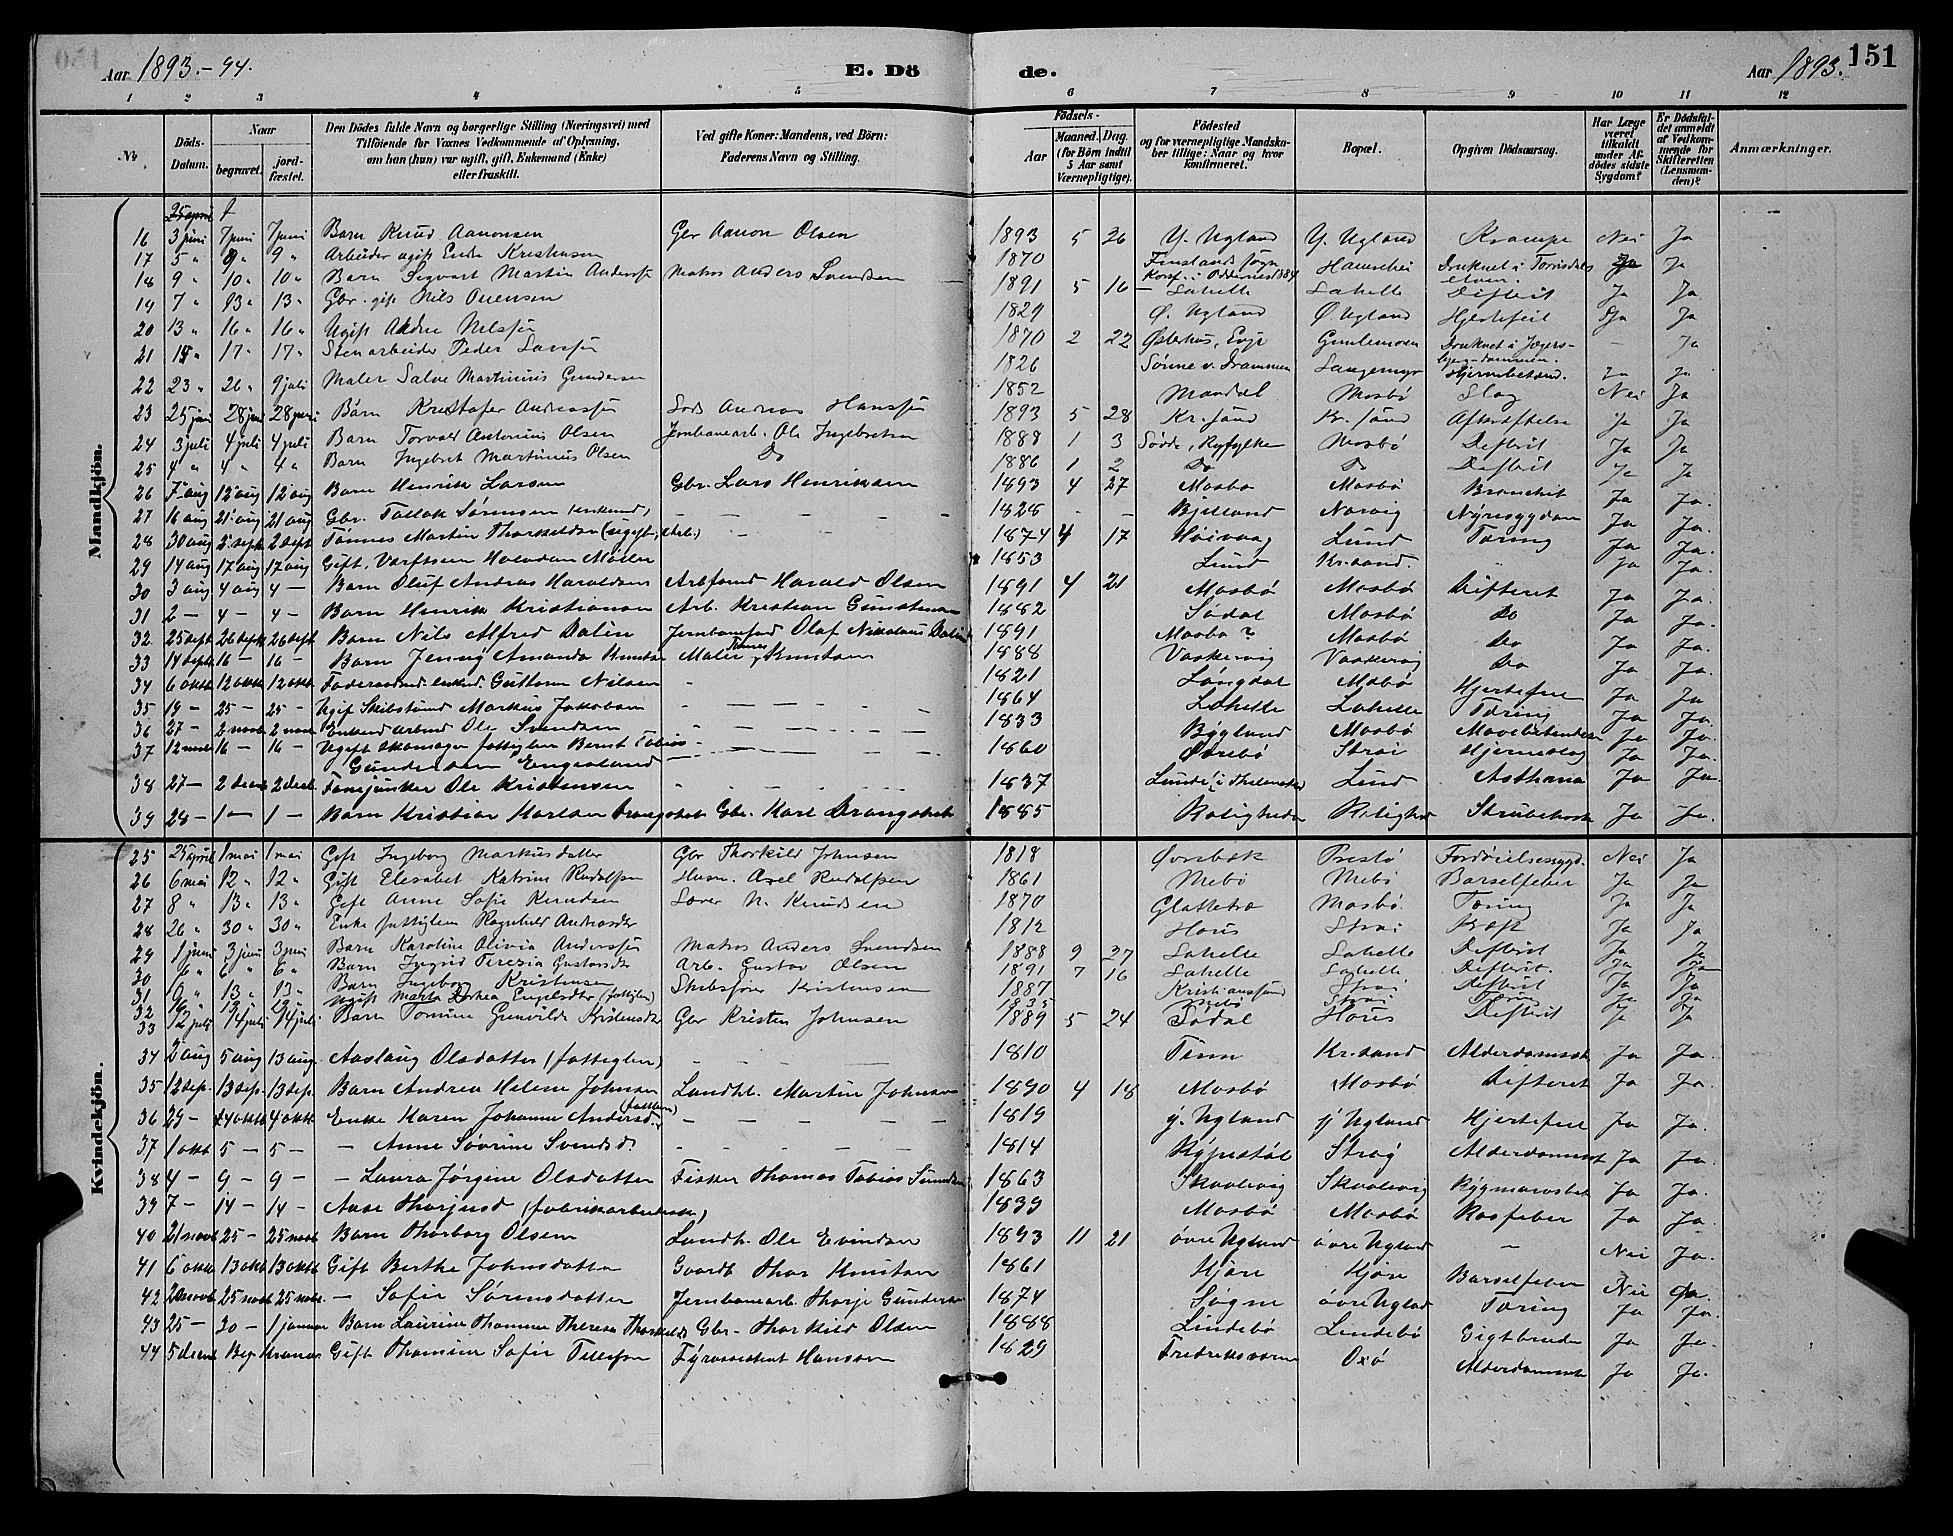 Aar 1893.-94.
E. Dö
de.
Aar 1893.
151
1 2 3 4 5 6 7 8 9 10 11 12
No
Döds-Datum.
Naar begravet. jordfæstet.
Den Dödes fulde Navn og borgerlige Stilling (Næringsvei) med Tilföiende for Voxnes Vedkommende af Oplysning, om han (hun) var ugift, gift, Enkemand (Enke) eller fraskilt.
Ved gifte Koner: Mandens, ved Börn: Faderens Navn og Stilling.
Födsels-
Aar Maaned. Dag. (for Börn indtil 5 Aar samt Værnepligtige).
Födested og for værnepligtige Mandskaber tillige: Naar og hvor konfirmeret.
Bopæl.
Opgiven Dödsaarsag.
Har Læge været tilkaldt under Afdödes sidste Sygdom?
Er Dödsfaldet anmeldt af Vedkommende for Skifteretten (Lensmanden)?
Anmærkninger.
Mandkjön.
25 april
16 3 juni 7 juni 7 juni Barn Knud Aanonsen Gbr Aanon Olsen 1893 5 26 Y. Ugland Y. Ugland Krampe Nei Ja
17 5 " 9 " 9 " Arbeider ugift Enda Kristiansen 1870 Finslands sogn Konf. i Oddernes 1884 Druknet i Torrisdals elven Ja Ja
18 9 " 10 " 10 " Barn Sigvart Martin Matros Anders Svendsen 1891 5 16 Lahelle Lahelle Difterit Ja Ja
19 7 " 13 " 13 " Gbr. gift Nils 1829 Ø. Ugland Ø. Ugland Hjertefeil Ja Ja
20 13 " 16 " 16 " Ugift Nilsen 1870 2 22 Østerhus, Evje Druknet i Jegersbjerg-dammen. - Ja
21 15 " 17 " 17 " Stenarbeider Peder Larsen 1826 Sønne v. Drammen Langemyr Hjernebetænd. Ja Ja
22 23 " 26 " 9 juli Maler Salve Martinius Gundersen 1852 Mandal Mosbö Slag Nei Ja
23 25 juni 28 juni 28 juni Barn Kristofer Andreassen Andreas Hanssen 1893 5 28 Kr. sand Kr. sand Afkræftelse Ja Ja
24 3 juli 4 juli 4 juli Barn Torvald Antonius Olsen Jernbanearb. Ole Ingebretsen 1888 1 3 Ryfylke Mosbö Difterit Ja Ja
25 4 " 4 " 4 " Barn Ingebret Martinius Olsen Do 1886 1 2 Do Do Difterit Ja Ja
26 12 aug 12 aug Barn Henrik Larsen Gbr. Lars Henriksen 1893 4 27 Mosbö Mosbö Bronchit Ja Ja.
27 16 aug 21 aug 21 aug Gbr. Tallak Sørensen (enkemd) - - - 1828 - - Bjelland Narvig Nyresygdom Ja Ja.
28 30 aug 2 sept 2 sept Tønnes Martin Thorkildsen (ugift) - - 1874 4 17 Høivaag Lund Tæring Ja Ja.
29 14 aug 17 aug 17 aug Gift, Møller 1853 Lund Kr.sand. Ja Ja.
30 3 aug 4 aug 4 - Barn Oluf Andreas Haraldsen Arbfmd Harald Olsen 1891 4 21 Mosbö Mosbö Difterit Ja Ja.
31 2 - 4 - 4 - Barn Henrik Kristiansen Arb. Kristian 1882 Sødal Mosbö Do Ja Ja.
32 25 sept 26 sept 26 sept Barn Nils Alfred Dalin Olaf Nikolaus Dalin 1891 Mosbö ? Mosbö Do Ja Ja.
33 14 sept 16 - 16 - Barn Jenny Amanda Knutsen Maler Tønnes Knutsen 1888 Vaskevig Vaskevig Do Ja Ja.
34 6 oktb 12 oktb 12 oktb Guttorm Nilsen - 1821 Langdal Mosbö Ja Ja
35 19 - 25 - 25 - Ugift Skibstømd Markus Jakobsen - - - 1864 Lahelle Lahelle Tæring Ja Ja.
36 27 - 2 novb 2 novb Ole Svendsen - - - 1833 Bygland Mosbö Ja Ja.
37 12 novb 16 - 16 - Ugift skomager fattiglem Bernt Tobias Gundersen Engesland - - - 1860 Øvrebö Strai Hjerneslag Ja Ja.
38 27 - 2 decb 2 decb Ole Kristensen - - - 1837 Lunde i Thelemarken Lund Asthma Ja Ja
39 28 - 1 - 1 - Barn Kristian Karlsen Drangsholt Gbr. Karl Drangsholt 1885 Roligheden Roligheden Strubehoste Ja Ja.
Kvindekjön.
25 25 april 1 mai 1 mai Gift Ingeborg Markusdatter Gbr Thorkild Johnsen 1818 Øvrebøk Prestö Fordøielsessygd. Nei Ja
26 6 mai 12 " 12 " Gift Elisabet Katrine Rudolfsen Husm. Axel Rudolfsen 1861 Mebö Mebö Barselfeber Ja Ja
27 8 " 13 " 13 " Gift Anne Sofie Knudsen Lærer N. Knudsen 1870 Glattetræ Mosbö. Tæring Ja Ja
28 26 " 30 " 30 " Enke fattiglem Ragnhild Andreasdtr 1812 Strai Kræft Ja Ja
29 1 juni 3 juni 3 juni Barn Karoline Olivia Anderssen Matros Anders Svendsen 1888 9 27 Lahelle Lahelle Difterit Ja Ja
30 6 " 6 " 6 " Barn Ingrid Terezia Gustavsdtr Arb. Gustav Olsen 1891 7 16 Lahelle Lahelle Difterit. Ja Ja
31 9 " 13 " 13 " Barn Ingeborg Kristensen Skibsfører Kristensen 1887 Kristianssand Strai Difterit Ja Ja
32 Ugift Marta Dorthea Engelsdtr (fattiglem) 1835 Mebö Strai Ja Ja
33 12 juli 14 juli 14 juli Barn Tomine Gunvilde Kristensdtr Gbr Kristen Johnsen 1889 5 24 Sødal Difterit Ja Ja
34 2 aug 5 aug 13 aug. Aaslaug Olsdatter (fattiglem) - - - 1810 Tinn Kr.sand Alderdomssvk Ja Ja.
35 12 sep. 13 sep. 13 sep. Barn Andrea Helene Johnsen Landh. Martin Johnsen 1890 4 18 Mosbö Mosbö Difterit Ja Ja.
36 29 - 4 oktb 4 oktb Enke Karen Johanne Andersd. (fattiglem) - - - 1819 y. Ugland y. Ugland Hjertefeil Ja Ja.
37 1 oktb 5 - 5 - - Anne Sørine Svendsd. - - - 1814 Strai Alderdomssvt Ja Ja.
38 4 - 9 - 9 - - Laura Jørgine Olsdatter Fisker Thomas Tobias 1863 Skaalevig Skaalevig Rygmarvsbet Ja Ja.
39 7 - 14 - 14 - Aase Thorjusd (fabrikarbeiderske) 1839 Mosbö Mosbö Rosfeber Ja Ja.
40 21 novb 25 - 25 novb Barn Thorborg Olsen Landh. Ole Evindsen 1893 11 21 øvre Ugland øvre Ugland - Nei Ja.
41 6 oktb 13 oktb 13 oktb Gift Berthe Johnsdatter Gaardb Thor Knutsen 1861 Hjøre Hjøre Barselfeber Nei Ja.
42 20 novb 25 novb 25 novb. - Sofie Sørensdatter Jernbanearb. Thorje Gundersen 1874 Søgne øvre Ugland Tæring Ja Ja.
43 25 - 30 - 1 januar Barn Laurine Thomine Theresa Thorkilds Gbr. Thorkild Olsen 1888 Lindebö Lindebö Gigtbruden Ja Ja.
44 5 decb Gift Thomine Sofie Tellefsen Fyrassistent Hanssen 1829 Fredriksværn Oxö Alderdomssvk Ja Ja.